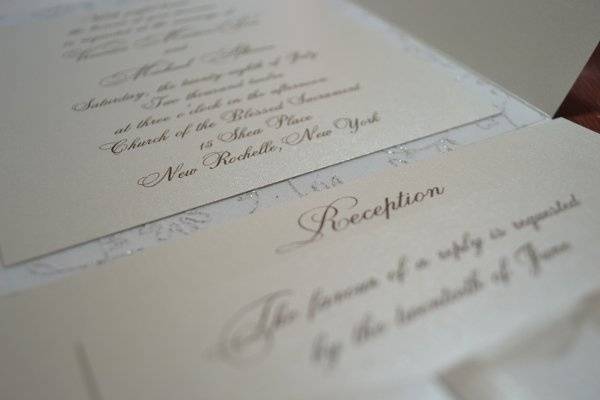 to requested at the marriage of
and
Michael
Saturday, the twenty eighth of July
Two thousand twelve
at three o'clock in the afternoon
Church of the Blessed Sacrament
15 Shea Place
New Rochelle, New York
Reception
The favour of a reply is requested
by the twentieth of June